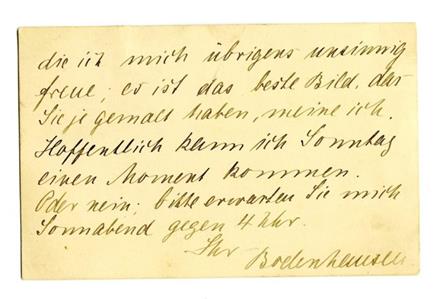 die ich mich übrigens unsinnig
freue; es ist das beste Bild, das
Sie je gemalt haben, meine ich.
Hoffentlich kann ich Sonntag
einen Moment kommen.
Oder nein; bitte erwarten Sie mich
Sonnabend gegen 4 Uhr.
Ihr
Bodenhausen